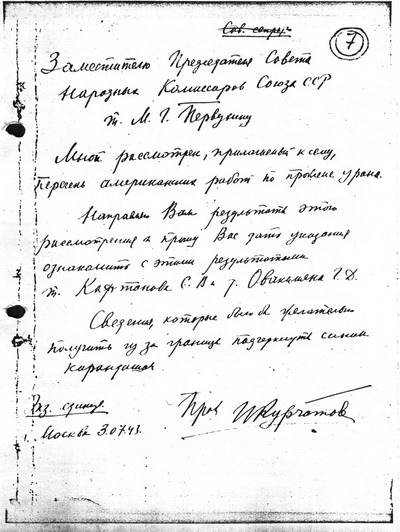 Сов. секр.
7
Заместителю Председателя Совета
Народных Комиссаров Союза ССР
т. М. Г. Первухину
Мной рассмотрен, прилагаемый к сему,
перечень американских работ по проблеме урана.
Направляю Вам результаты этого
рассмотрения и прошу Вас дать указания
ознакомить с этими результатами
т. Кафтанова С. В и т. Овакимяна Г. Д.
Сведения, которые было б желательно
получить из за границы подчеркнуты синим
карандашом
Экз. единств.
Москва 3.07.43.
Проф И Курчатов